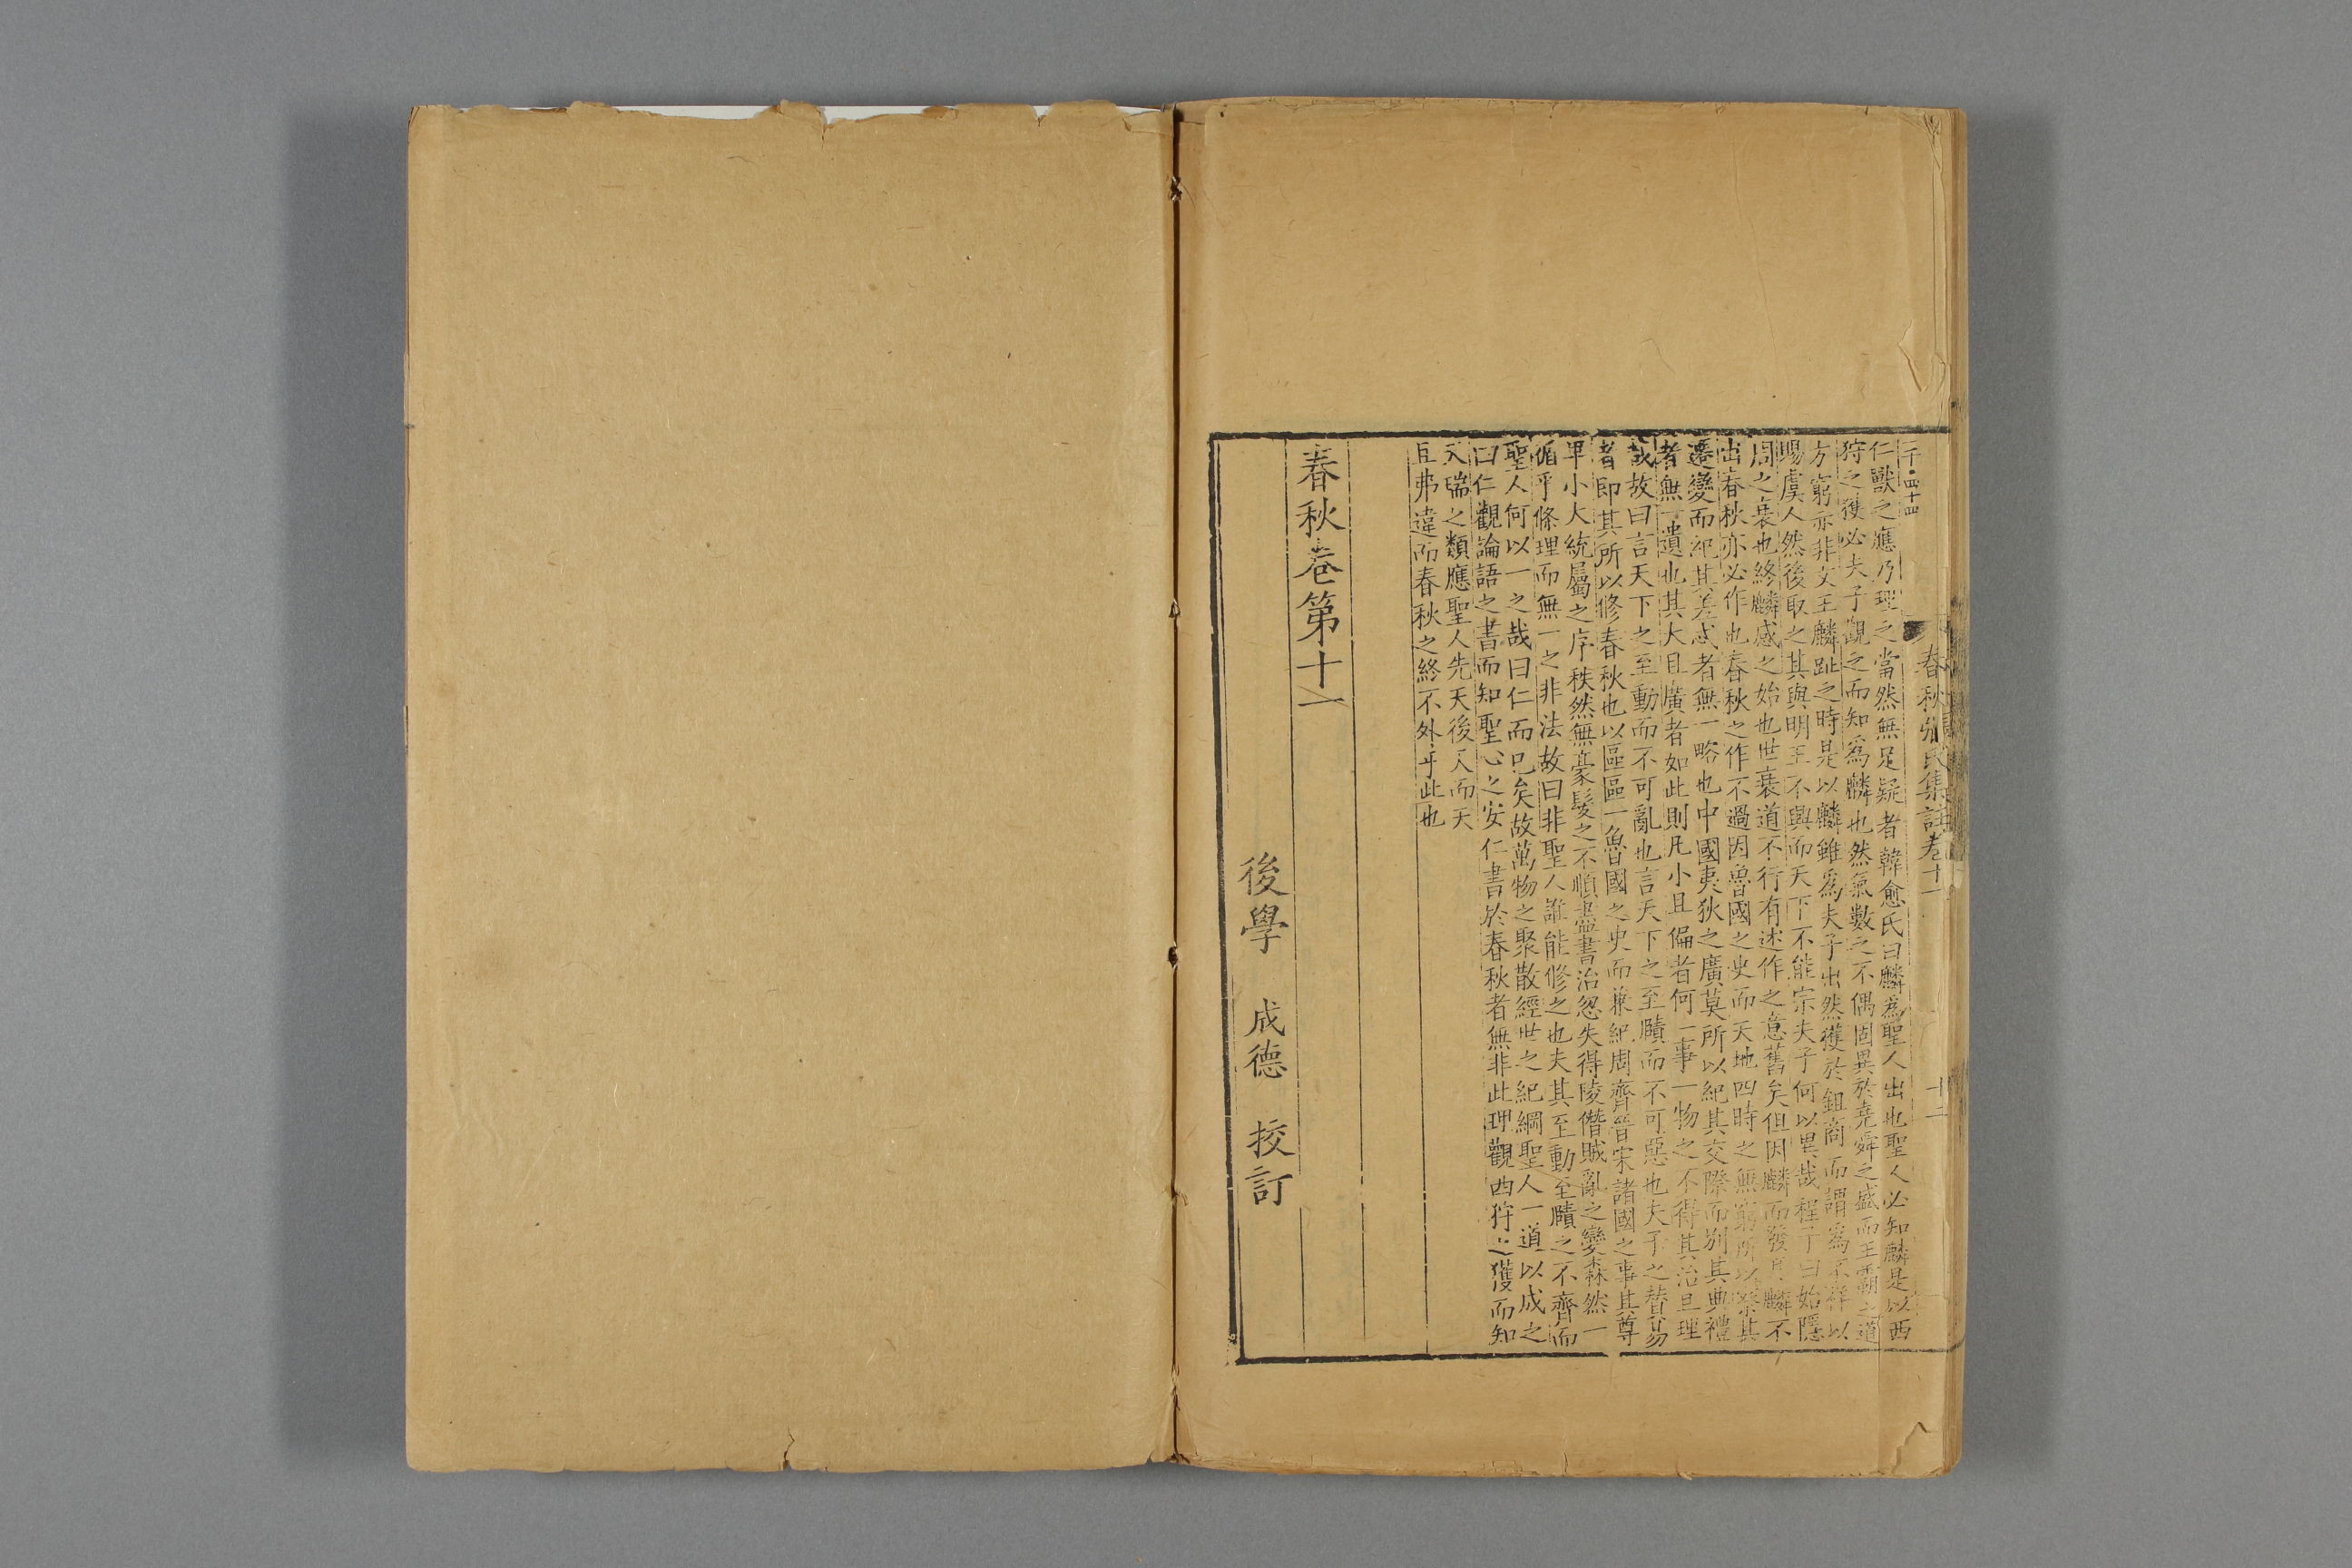 春秋張氏集註卷十一
十二
仁獸之應乃理之當然無足疑者韓愈氏曰麟爲聖人出也聖人必知麟是以西
狩之獲必夫子觀之而知爲麟也然氣數之不偶固異於堯舜之盛而王霸之道
方窮亦非文王麟趾之時是以麟雖爲夫子出然獲於鉏商而謂爲不祥以
賜虞人然後取之其與明王不興而天下不能宗夫子何以異哉程子曰始隱
周之衰也終麟感之始也世衰道不行有述作之意舊矣但因麟而發其麟不
出春秋亦必作也春秋之作不過因魯國之史而天地四時之無窮所以察其
遷變而紀其差忒者無一略也中國夷狄之廣莫所以紀其交際而別其典禮
者無一遺也其大且廣者如此則凡小且偏者何一事一物之不得其治且理
哉故曰言天下之至動而不可亂也言天下之至賾而不可惡也夫子之替易
者即其所以修春秋也以區區一魯國之史而兼紀周齊晉宋諸國之事其尊
卑小大統屬之序秩然無豪髮之不順盡書治忽失得陵僭賊亂之變森然一
循乎條理而無一之非法故曰非聖人誰能修之也夫其至動至賾之不齊而
聖人何以一之哉曰仁而已矣故萬物之聚散經世之紀綱聖人一道以成之
曰仁觀論語之書而知聖心之安仁書於春秋者無非此理觀西狩之獲而知
天瑞之類應聖人先天後天而天
且弗違而春秋之終不外乎此也
春秋卷第十一
後學 成德 挍訂